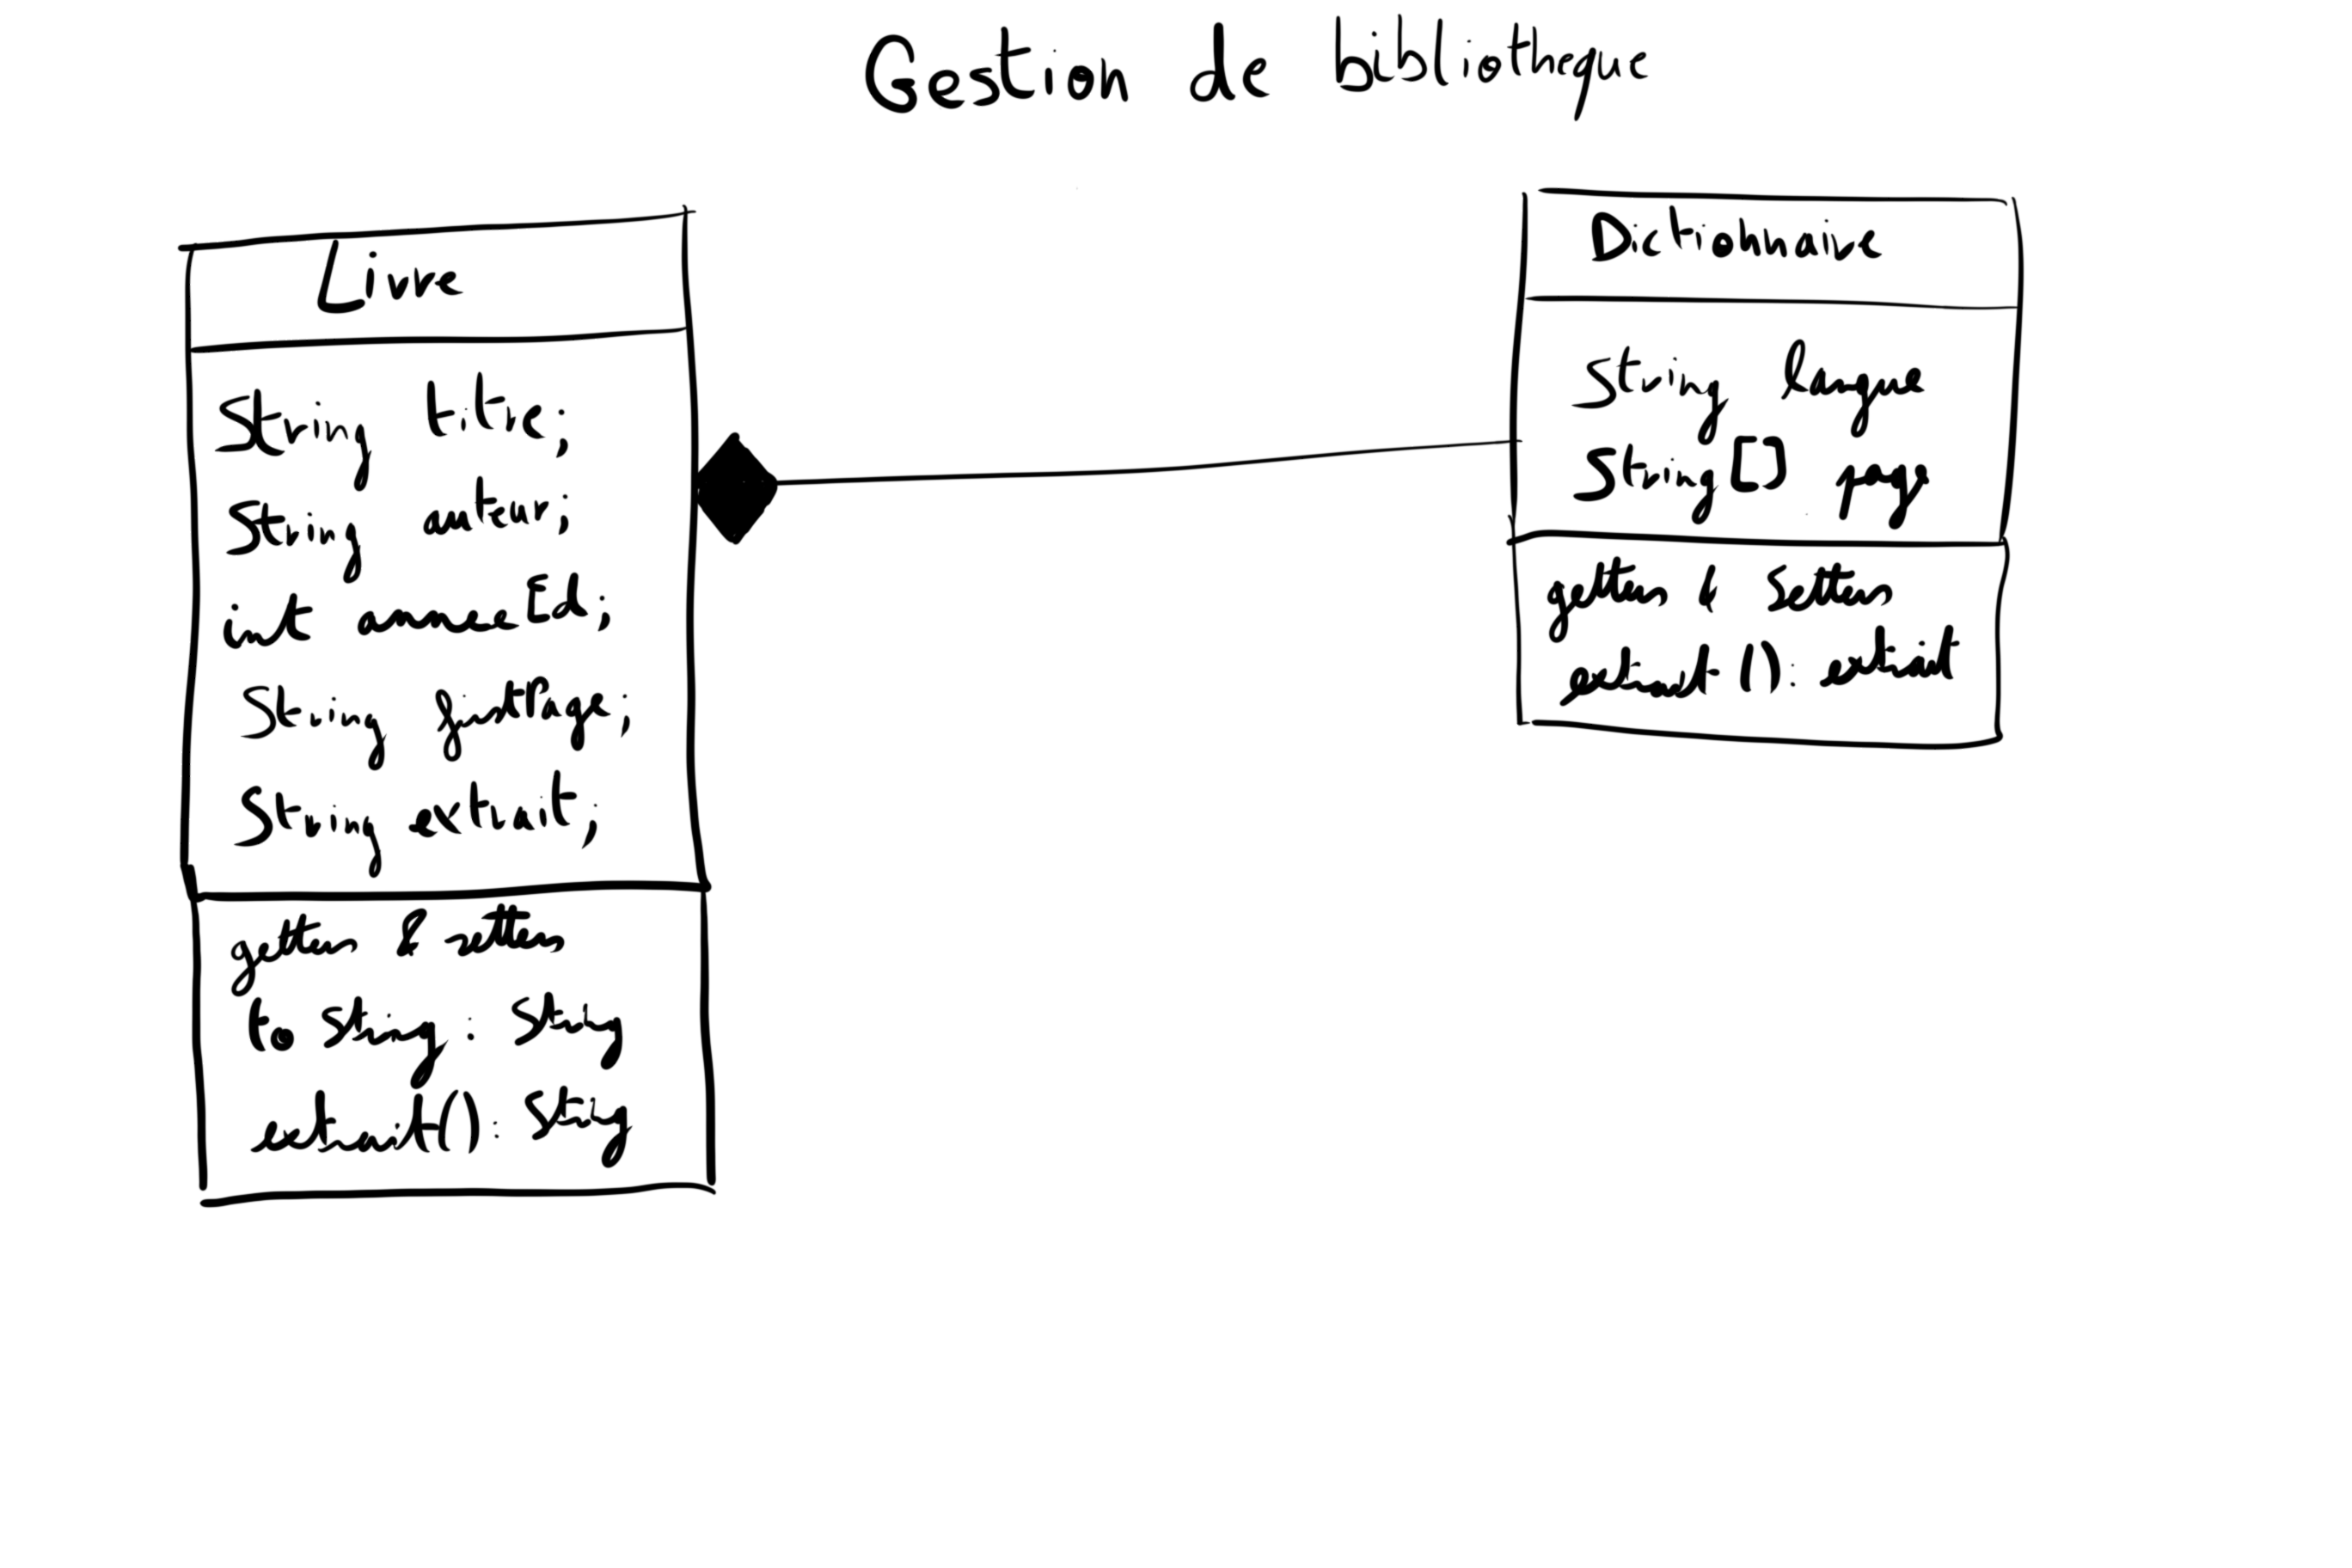 Gestion de bibliotheque
Livre
String titre;
String auteur;
int anneeEd;
String firstPage;
String extrait;
getters & setters
to String: String
extrait(): String
Dictionnaire
String langue
String[] page
getters & Setters
extrait(): extrait